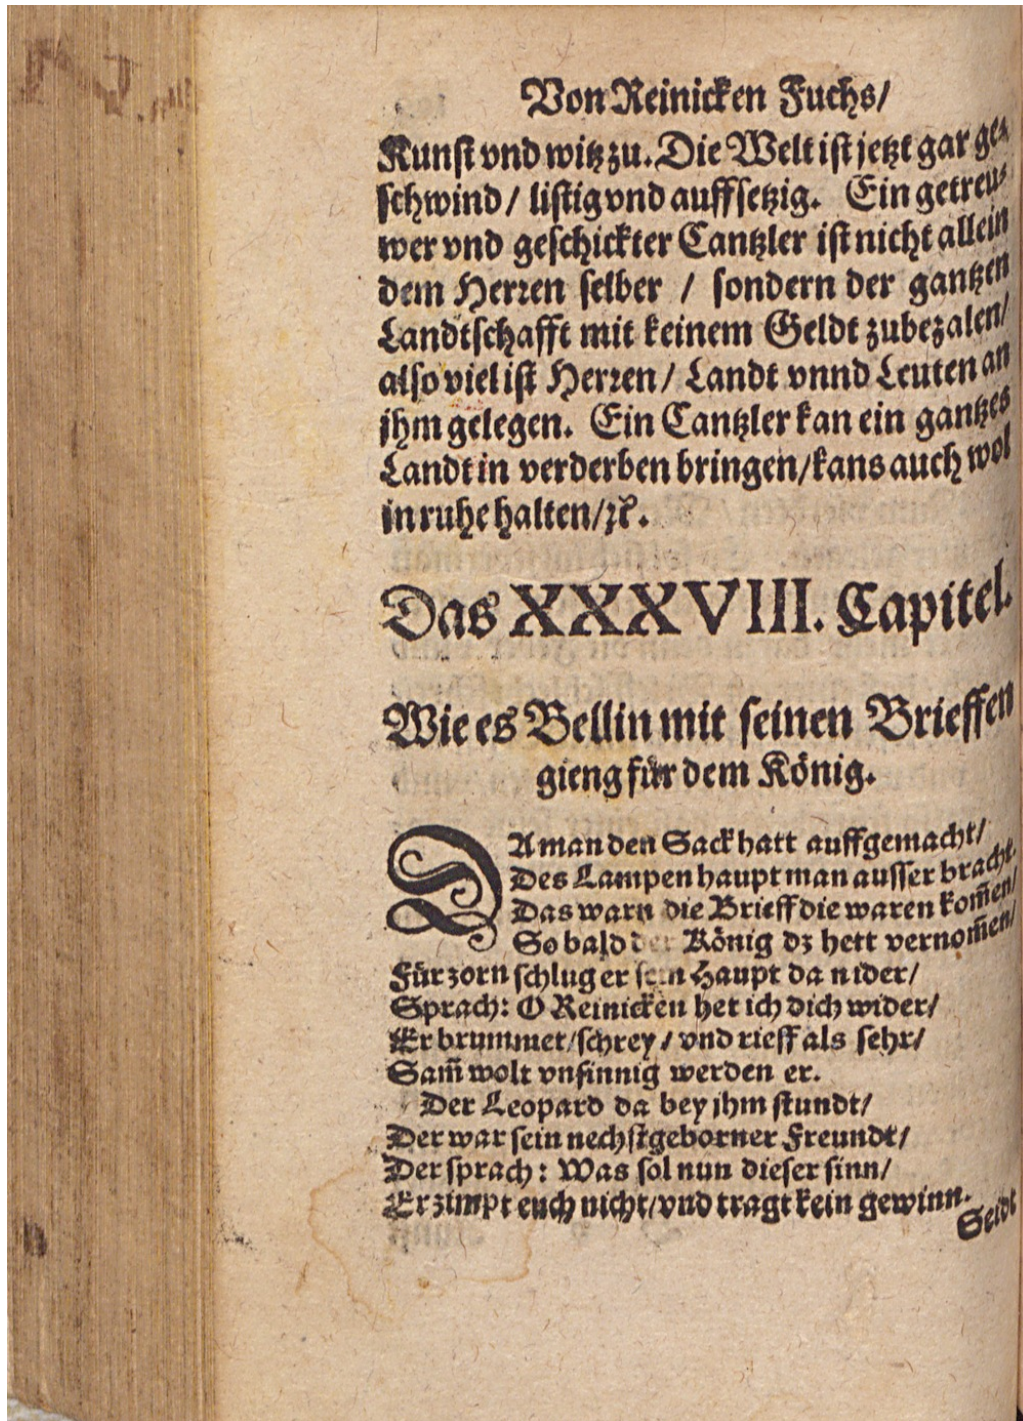 Von Reinicken Fuchs/
Kunst vnd witz zu. Die Welt ist jetzt gar ge-
schwind / listig vnd auffsetzig. Ein getreu-
wer vnd geschickter Cantzler ist nicht allein
dem Herren selber / sondern der gantzen
Landtschafft mit keinem Geldt zubezalen/
also viel ist Herren / Landt vnnd Leuten an
jhm gelegen. Ein Cantzler kan ein gantzes
Landt in verderben bringen/kans auch wol
in ruhe halten/ꝛc.
Das XXXVIII. Capitel.
Wie es Bellin mit seinen Brieffen
gieng für dem König.
DA man den Sack hatt auffgemacht/
Des Lampen haupt man ausser bracht.
Das warn die Brieff die waren kom̃en/
So bald der König dz hett vernom̃en/
Für zorn schlug er sein Haupt da nider/
Sprach: O Reinicken het ich dich wider/
Er brummet/schrey / vnd rieff als sehr/
Sam̃ wolt vnsinnig werden er.
Der Leopard da bey jhm stundt/
Der war sein nechstgeborner Freundt/
Der sprach: Was sol nun dieser sinn/
Er zimpt euch nicht/vnd tragt kein gewinn.
Seidt